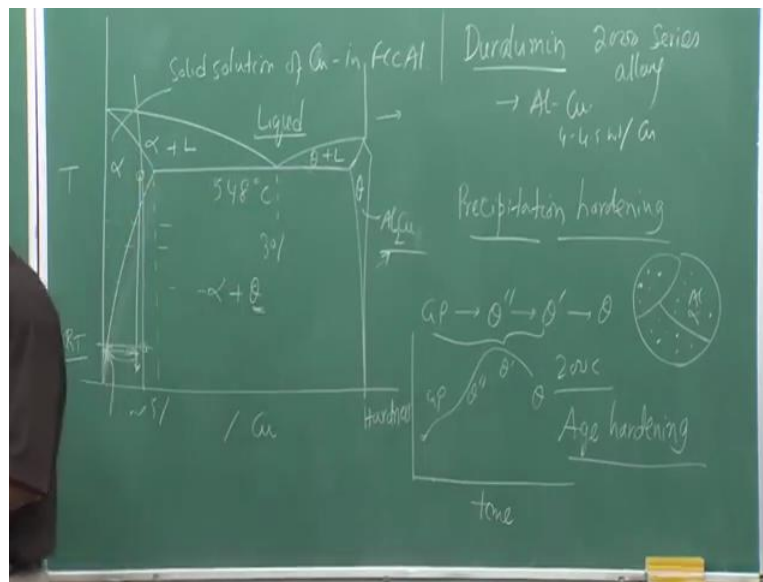 Solid solution of Cu-in FCC Al
Liquid
α + L
α
θ + L
T
548°C
θ
Al2Cu
3%
α + θ
RT
~5%
% Cu
Duralumin 2000 Series
alloy
→ Al-Cu
4-4.5 wt% Cu
Precipitation hardening
GP → θ'' → θ' → θ
Al
Hardness
GP
θ''
θ'
θ
200C
Age hardening
time